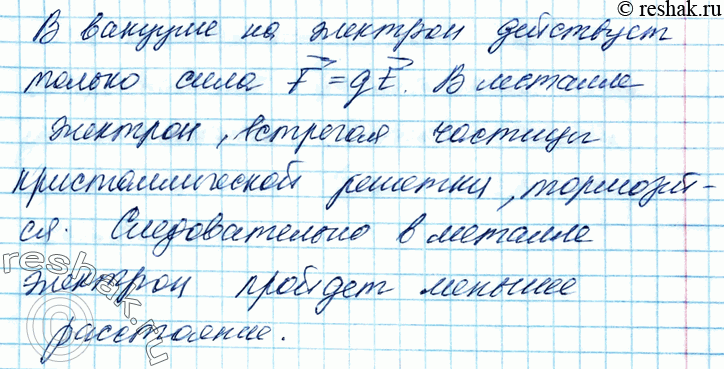 © reshak.ru
В вакууме на электрон действует
только сила F⃗ = qE⃗. В металле
электрон, встречая частицы
кристаллической решетки, тормозит-
ся. Следовательно в металле
электрон пройдет меньшее
расстояние.